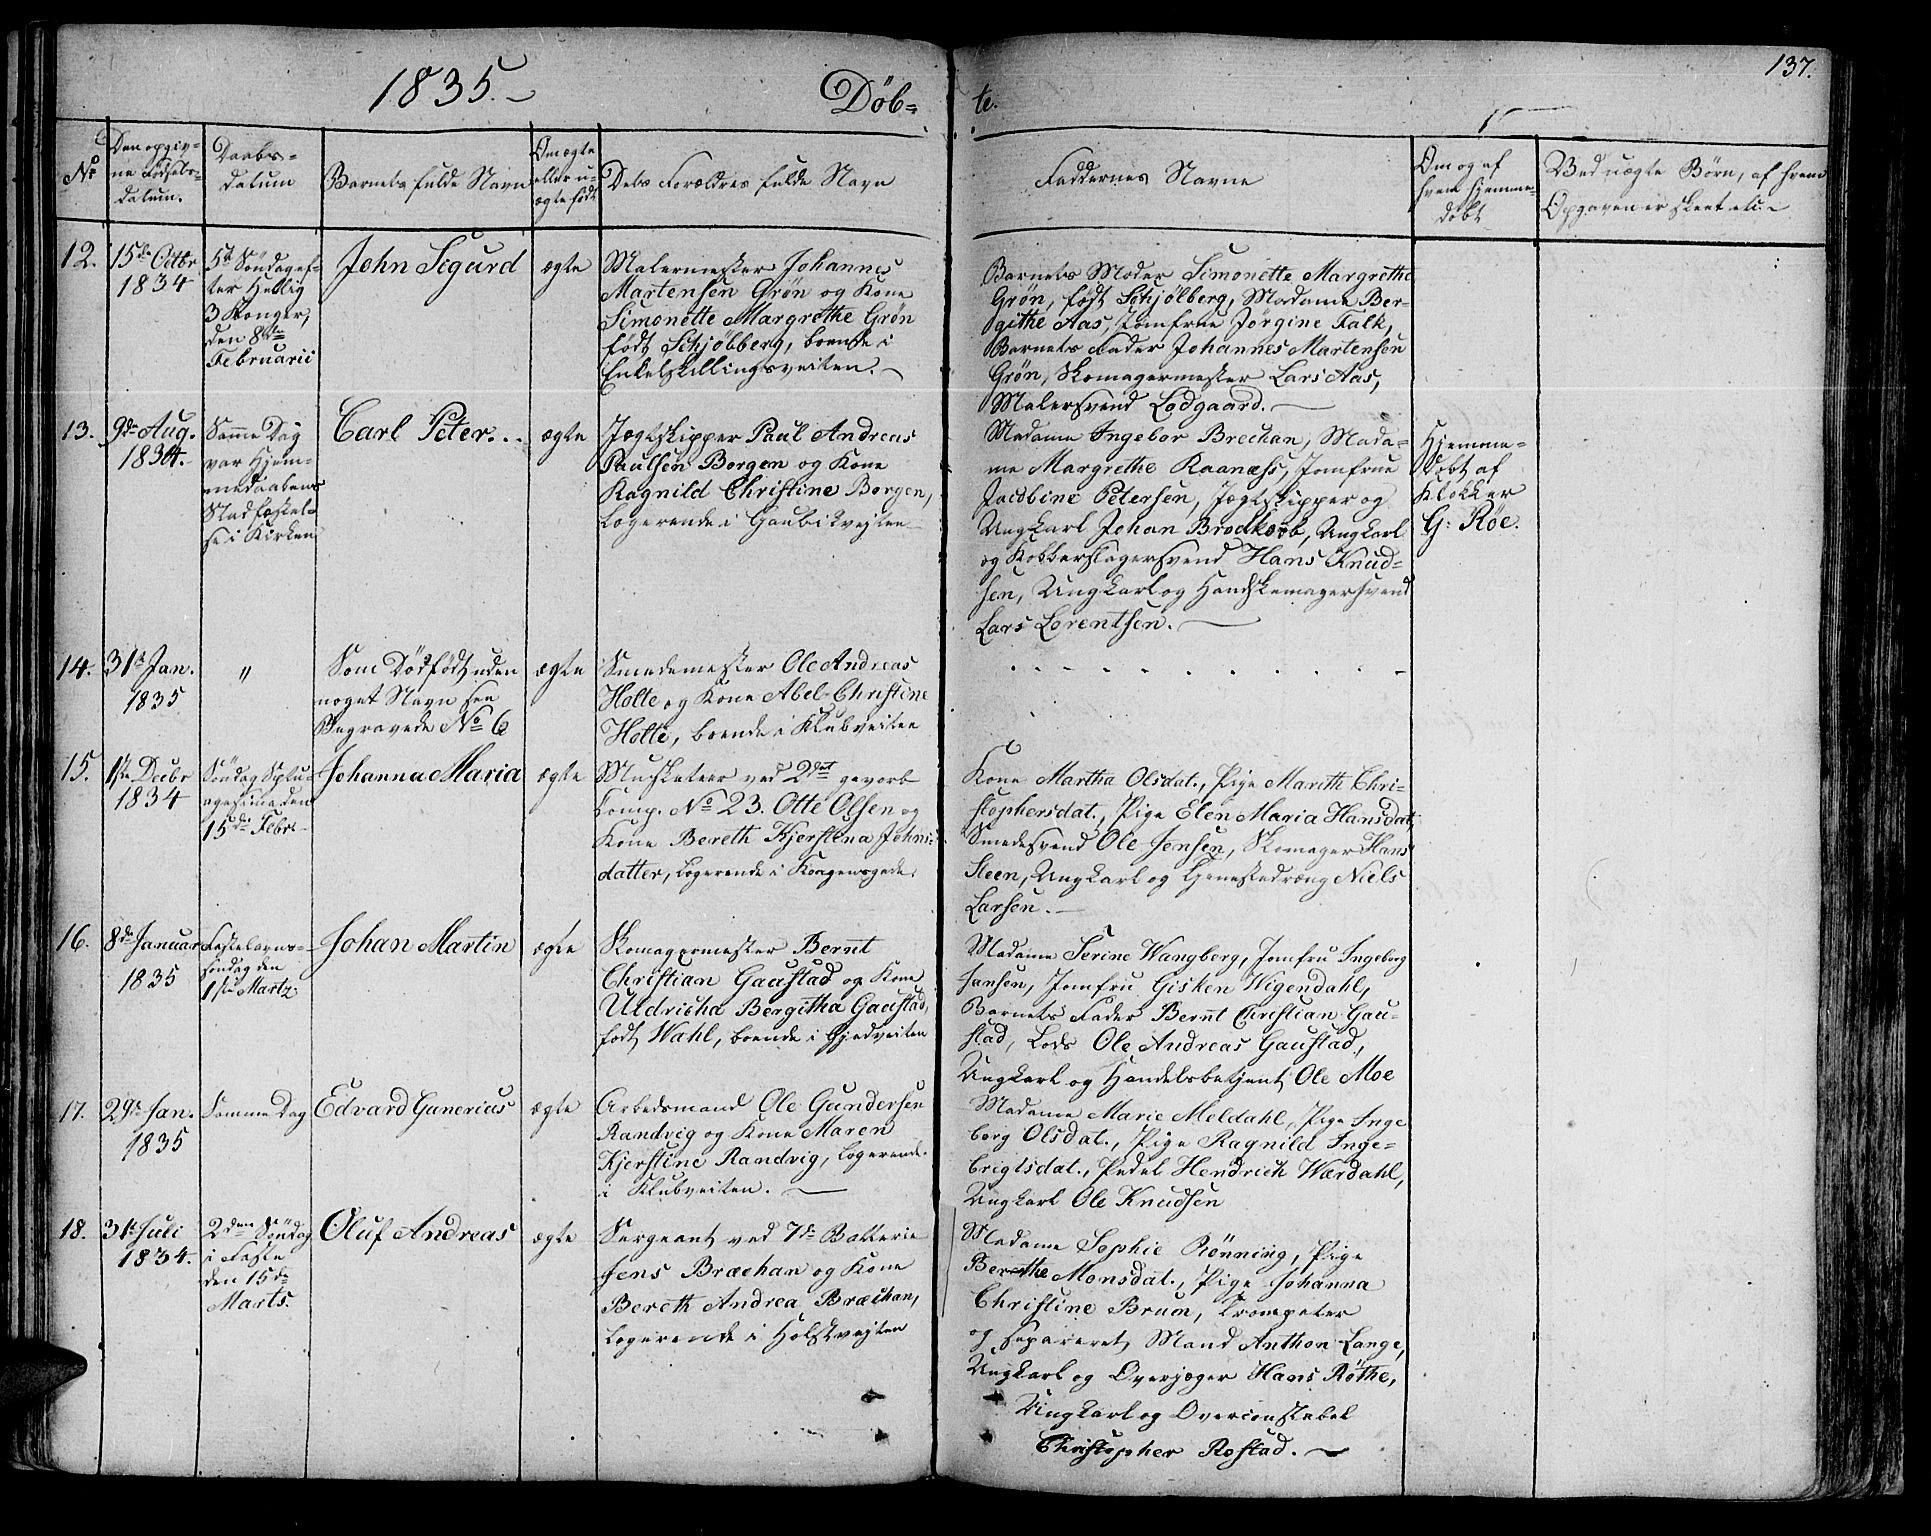 137.
1835.
Döb=
te.
No
Den opgiv-
ne Födsels-
datum.
Daabs-
datum
Barnets fulde Navn
Om ægte
eller u-
ægte født
Dets Forældres fulde Navn
Faddernes Navne
Om og af
hvem hjemme-
døbt
Ved uægte Børn, af hvem
Opgaven er skeet etc.
12.
15de Octbr
1834
5te Söndag ef-
ter Hellig
3 Konger,
den 8de
Februarii
John Sigurd
ægte
Malermester Johannes
Martensen Grön og Kone
Simonette Margrethe Grön
født Schjölberg, boende i
Enkelskillingsveiten.
Barnets Moder Simonette Margrethe
Grön, født Schjölberg, Madame Ber-
githe Aas, Jomfrue Jörgine Falk,
Barnets Fader Johannes Martensen
Grön, Skomagermester Lars Aas,
Malersvend Lodgaard.
13.
9de Aug.
1834.
Samme Dag
var Hjem-
medaabens
Stadfæstel-
se i Kirken
Carl Peter.
ægte
Jægtskipper Paul Andreas
Paulsen Borgen og Kone
Ragnild Christine Borgen,
Logerende i Gaubækvejten
Madame Ingebor Brechan, Mada-
me Margrethe Raanæss, Jomfrue
Jacobine Petersen, Jægtskipper og
Ungkarl Johan Brodkorb, Ungkarl
og Kobberslagersvend Hans Knud-
sen, Ungkarl og Handskemagersvend
Lars Lorentsen.
Hjemme-
døbt af
Klokker
G: Röe.
14.
31te Jan.
1835
"
Som Dødfødt uden
noget Navn see
Begravede No 6
ægte
Smedemester Ole Andreas
Holte og Kone Abel Christine
Holte, boende i Klubveiten
15.
1ste Decbr
1834
Söndag Septu-
agesima den
15de Febr.
Johanna Maria
ægte
Musketeer ved 2det gevorb
Comp. No 23. Otte Olsen og
Kone Bereth Kjerstena Johns-
datter, Logerende i Kongensgade.
Kone Martha Olsdat., Pige Marith Chri-
stophersdat., Pige Elen Maria Hansdat,
Smedesvend Ole Jensen, Skomager Hans
Steen, Ungkarl og Tjenestedræng Niels
Larsen.
16.
8de Januar
1835
Fastelavns-
söndag den
1ste Martz
Johan Martin
ægte
Skomagermester Bernt
Christian Gaustad og Kone
Uldricha Bergitha Gaustad,
født Wahl, boende i Gjedveiten
Madame Serine Wangberg, Jomfru Ingeborg
Jansen, Jomfru Gisken Wigendahl,
Barnets Fader Bernt Christian Gau-
stad, Lods Ole Andreas Gaustad,
Ungkarl og Handelsbetjent Ole Moe
17.
29de Jan.
1835
Samme Dag
Edvard Gunerius
ægte
Arbedsmand Ole Gundersen
Randvig og Kone Maren
Kjerstine Randvig, Logerende
i Klubveiten.
Madame Marie Meldahl, Pige Inge
borg Olsdat., Pige Ragnild Inge-
brigtsdat., Pedel Hendrich Wærdahl,
Ungkarl Ole Knudsen
18.
31te Juli
1834.
2den Söndag
i Faste
den 15de
Marts.
Oluf Andreas
ægte
Sergeant ved 7de Batterie
Jens Bræchan og Kone
Bereth Andrea Bræchan,
Logerende i Holstvejten
Madame Sophie Rönning, Pige
Berethe Monsdat., Pige Johanna
Christine Brum, Trompeter
og separeret Mand Anthon Lange,
Ungkarl og Overjæger Hans Röthe,
Ungkarl og Overconstabel
Christopher Rostad.